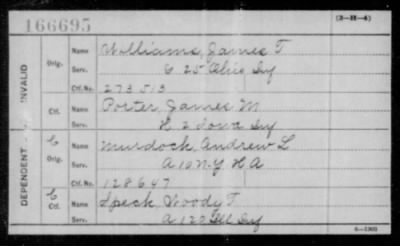 166695
(3-H-4)
DEPENDENT INVALID
Orig. Name Williams, James T
Serv. G 25 Ohio Inf
Ctf. No. 273513
Ctf. Name Porter, James M
Serv. H 2 Iowa Inf
C
Orig. Name Murdock, Andrew L
Serv. A 10 N.Y. H A
Ctf. No. 128647
C
Ctf. Name Speck, Woody T
Serv. A 120 Ill Inf